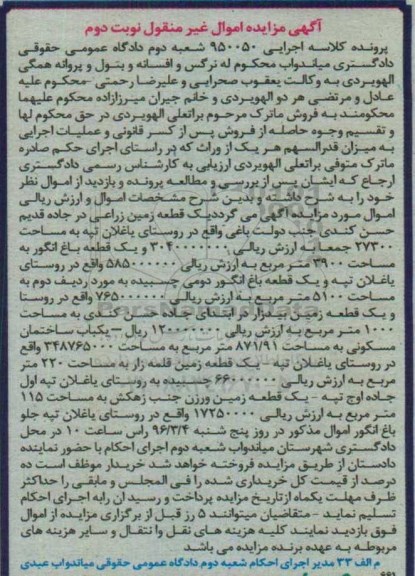 آگهی مزایده اموال غیر منقول نوبت دوم
پرونده کلاسه اجرایی ۹۵۰۰۵۰ شعبه دوم دادگاه عمومی حقوقی
دادگستری میاندواب محکوم له نرگس و افسانه و بتول و پروانه همگی
الهویردی به وکالت یعقوب صحرایی و علیرضا رحمتی -محکوم علیه
عادل و مرتضی هر دو الهویردی و خانم جیران میرزازاده محکوم علیهما
محکومند به فروش ماترک مرحوم براتعلی الهویردی در حق محکوم لها
و تقسیم وجوه حاصله از فروش پس از کسر قانونی و عملیات اجرایی
به میزان قدرالسهم هر یک از وراث که در راستای اجرای حکم صادره
ماترک متوفی براتعلی الهویردی ارزیابی به کارشناس رسمی دادگستری
ارجاع که ایشان پس از بررسی و مطالعه پرونده و بازدید از اموال نظر
خود را به شرح داشته و بدین شرح مشخصات اموال و ارزش ریالی
اموال مورد مزایده آگهی می گرددیک قطعه زمین زراعی در جاده قدیم
حسن کندی جنب دولت باغی واقع در روستای یاغلان تپه به مساحت
۲۷۳۰۰ جمعا به ارزش ریالی ۳۰۴۰۰۰۰۰۰۰ و یک قطعه باغ انگور به
مساحت ۳۹۰۰ متر مربع به ارزش ریالی ۵۸۵۰۰۰۰۰۰ واقع در روستای
یاغلان تپه و یک قطعه باغ انگور دومی چسبیده به مورد ردیف دوم به
مساحت ۵۱۰۰ متر مربع به ارزش ریالی ۷۶۵۰۰۰۰۰۰ واقع در روستا
و یک قطعه زمین بیدزار در ابتدای جاده حسن کندی به مساحت
۱۰۰۰ متر مربع به ارزش ریالی ۱۲۰۰۰۰۰۰۰ ریال –یکباب ساختمان
مسکونی به مساحت ۸۷۱/۹۱ متر مربع به مساحت ۳۴۸۷۶۵۰۰۰ واقع
در روستای یاغلان تپه – یک قطعه زمین قلمه زار به مساحت ۲۲۰ متر
مربع به ارزش ریالی ۶۶۰۰۰۰۰۰ چسبیده به روستای یاغلان تپه اول
جاده اوچ تپه – یک قطعه زمین ورزن جنب زهکش به مساحت ۱۱۵
متر مربع به ارزش ریالی ۱۷۲۵۰۰۰۰ واقع در روستای یاغلان تپه جلو
باغ انگور اموال مذکور در روز پنج شنبه ۹۶/۳/۴ راس ساعت ۱۰ در محل
دادگستری شهرستان میاندواب شعبه دوم اجرای احکام با حضور نماینده
دادستان از طریق مزایده فروخته خواهد شد خریدار موظف است ده
درصد از قیمت کل خریداری شده را فی المجلس و مابقی را حداکثر
ظرف مهلت یکماه ازتاریخ مزایده پرداخت و رسید ان رابه اجرای احکام
تسلیم نماید -متقاضیان میتوانند ۵ رز قبل از برگزاری مزایده از اموال
فوق بازدید نمایند کلیه هزینه های نقل وا نتقال و سایر هزینه های
مربوطه به عهده برنده مزایده می باشد
م الف ۳۳ مدیر اجرای احکام شعبه دوم دادگاه عمومی حقوقی میاندواب عبدی